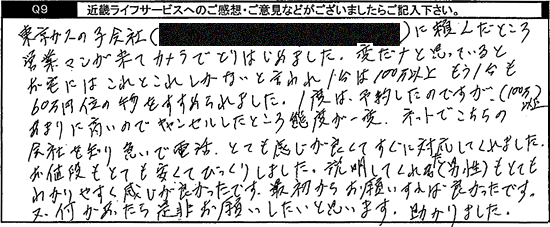 Q9 近畿ライフサービスへのご感想・ご意見などがございましたらご記入下さい。
東京ガスの子会社( )に頼んだところ
営業マンが来てカメラでとりはじめました。変だナと思っていると
お宅にはこれとこれしかないと言われ1台は100万以上 もう1台も
60万円位の物をすすめられました。1度は、予約したのですが、(100万)以上
あまりに高いのでキャンセルしたところ態度が一変。ネットでこちらの
会社を知り急いで電話、とても感じが良くてすぐに対応してくれました。
お値段もとても安くてびっくりしました。説明してくれた(男性)もとても
わかりやすく感じが良かったです。最初からお願いすれば良かったです。
又、何かあったら是非お願いしたいと思います。助かりました。